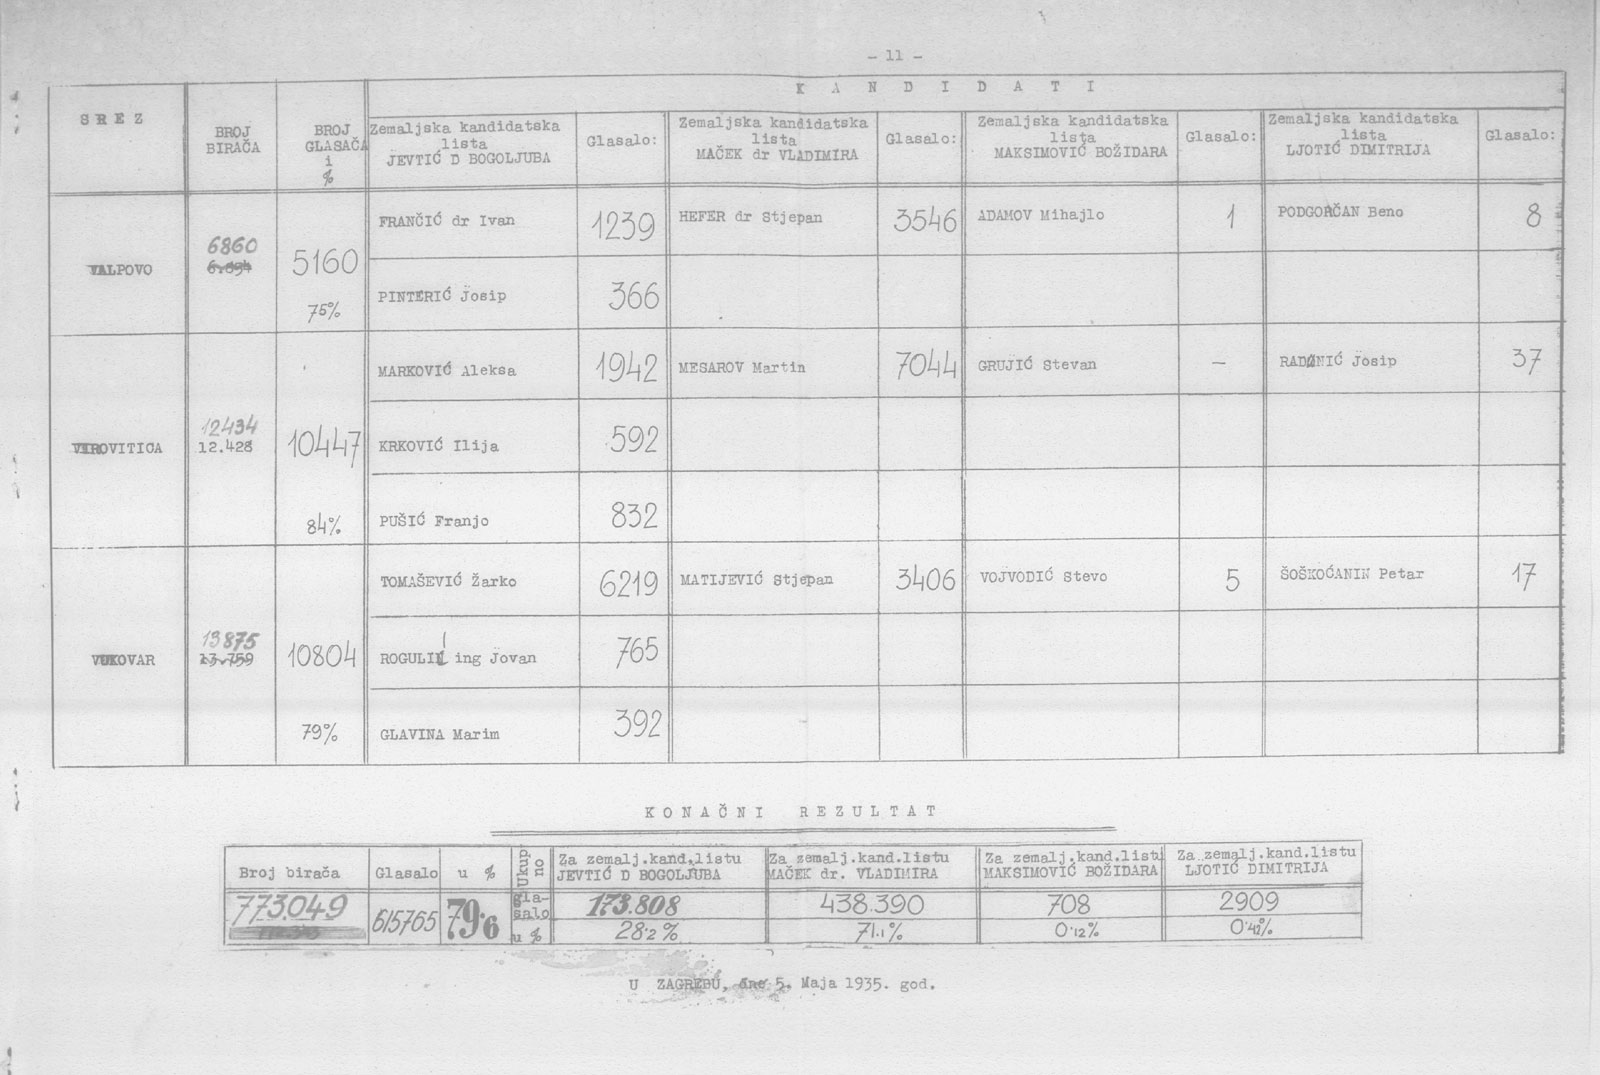 - 11 -
K A N D I D A T I
SREZ
BROJ BIRAČA
BROJ GLASAČA i %
Zemaljska kandidatska lista JEVTIĆ D BOGOLJUBA
Glasalo:
Zemaljska kandidatska lista MAČEK dr VLADIMIRA
Glasalo:
Zemaljska kandidatska lista MAKSIMOVIĆ BOŽIDARA
Glasalo:
Zemaljska kandidatska lista LJOTIĆ DIMITRIJA
Glasalo:
VALPOVO
6860
5160
75%
FRANČIĆ dr Ivan 1239 HEFER dr Stjepan 3546 ADAMOV Mihajlo 1 PODGORČAN Beno 8
PINTERIĆ Josip 366
VIROVITICA
12434
12.428
10447
84%
MARKOVIĆ Aleksa 1942 MESAROV Martin 7044 GRUJIĆ Stevan — RADONIĆ Josip 37
KRKOVIĆ Ilija 592
PUŠIĆ Franjo 832
VUKOVAR
13875
13.759
10804
79%
TOMAŠEVIĆ Žarko 6219 MATIJEVIĆ Stjepan 3406 VOJVODIĆ Stevo 5 ŠOŠKOĆANIN Petar 17
ing Jovan 765
GLAVINA Marim 392
KONAČNI REZULTAT
Broj birača
Glasalo
u %
Ukupno
Za zemalj.kand.listu JEVTIĆ D BOGOLJUBA
Za zemalj.kand.listu MAČEK dr. VLADIMIRA
Za zemalj.kand.listu MAKSIMOVIĆ BOŽIDARA
Za zemalj.kand.listu LJOTIĆ DIMITRIJA
773.049 615765 79.6 glasalo 173.808 438.390 708 2909
u % 28.2% 71.1% 0.12%
U ZAGREBU, dne 5. Maja 1935. god.